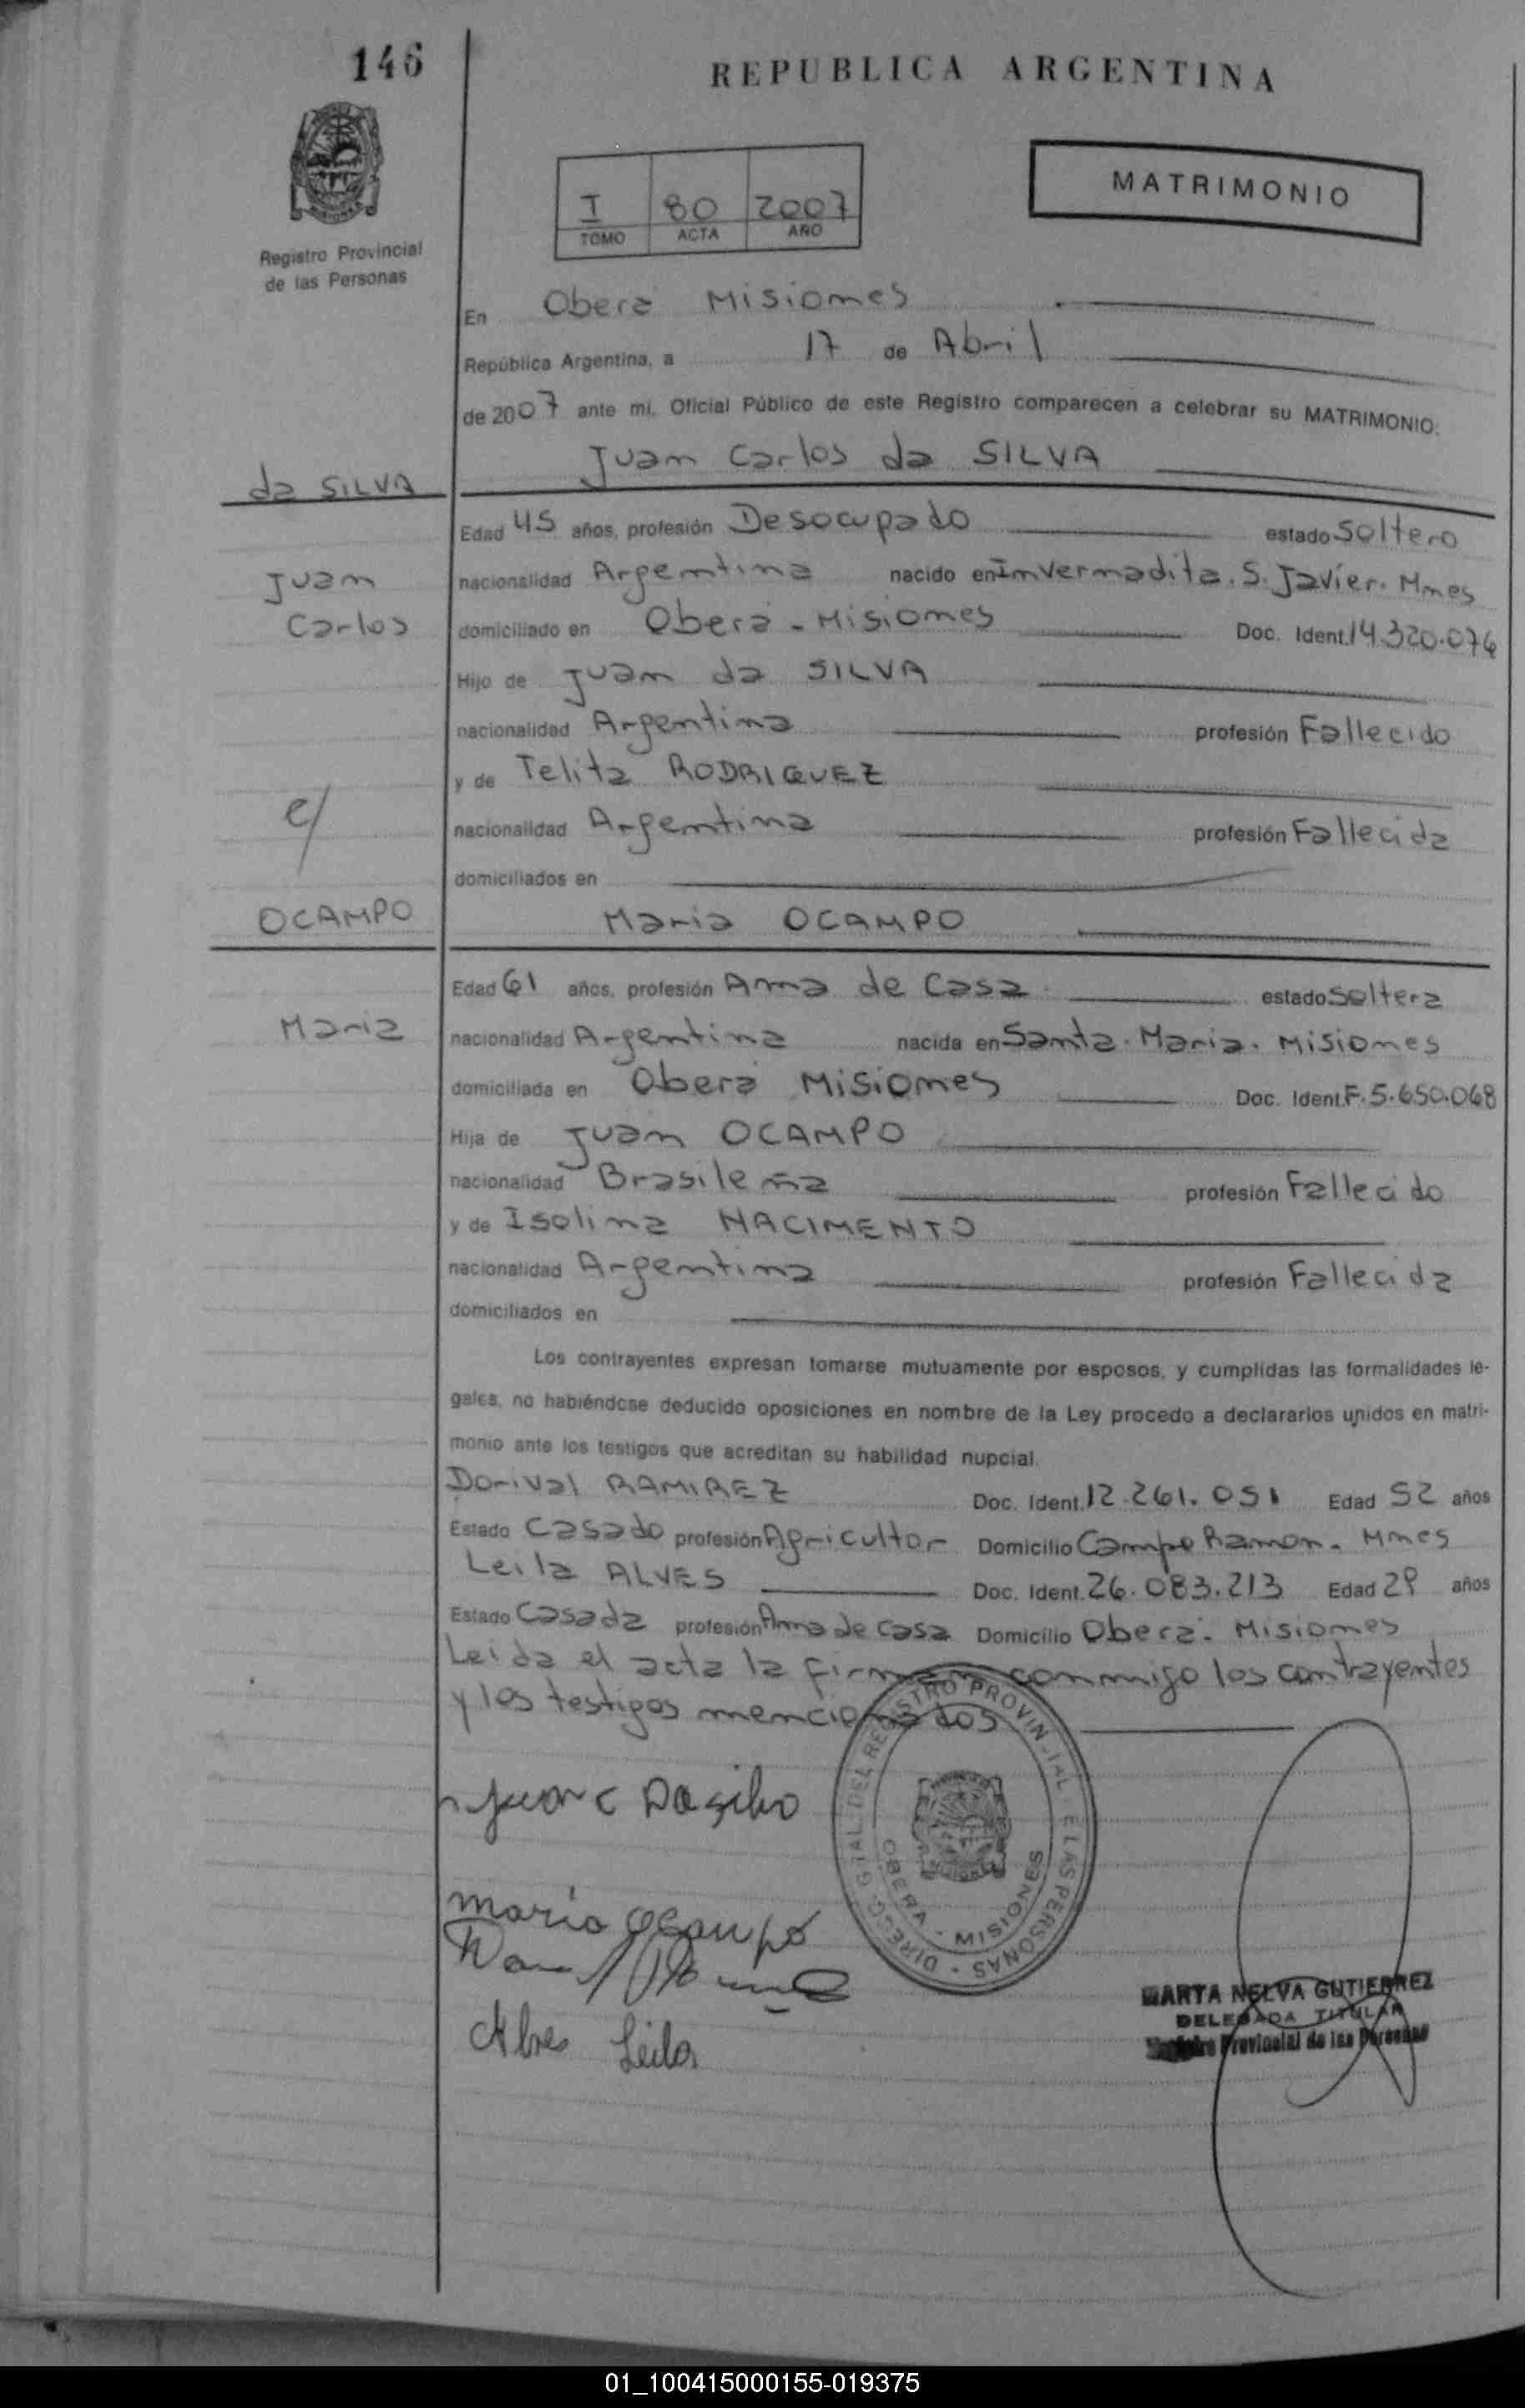 146
REPUBLICA ARGENTINA
MISIONES
Registro Provincial
de las Personas
I 80 2007
TOMO ACTA AÑO
MATRIMONIO
En Oberá Misiones
República Argentina, a 17 de Abril
de 2007 ante mi, Oficial Público de este Registro comparecen a celebrar su MATRIMONIO:
Juan Carlos da SILVA
da SILVA
Juan
Carlos
Edad 45 años, profesión Desocupado estado Soltero
nacionalidad Argentina nacido en Invernadita. S. Javier. Mnes
domiciliado en Oberá - Misiones Doc. Ident. 14.320.074
Hijo de Juan da SILVA
nacionalidad Argentina profesión Fallecido
y de Telita RODRIGUEZ
nacionalidad Argentina profesión Fallecida
domiciliados en
c/
OCAMPO
Maria
Maria OCAMPO
Edad 61 años, profesión Ama de Casa estado Soltera
nacionalidad Argentina nacida en Santa. Maria. Misiones
domiciliada en Oberá Misiones Doc. Ident. F. 5.650.068
Hija de Juan OCAMPO
nacionalidad Brasileña profesión Fallecido
y de Isolina NACIMENTO
nacionalidad Argentina profesión Fallecida
domiciliados en
Los contrayentes expresan tomarse mutuamente por esposos, y cumplidas las formalidades le-
gales, no habiéndose deducido oposiciones en nombre de la Ley procedo a declararlos unidos en matri-
monio ante los testigos que acreditan su habilidad nupcial.
Dorival RAMIREZ Doc. Ident. 12.261.051 Edad 52 años
Estado Casado profesión Agricultor Domicilio Campo Ramon. Mnes
Leila ALVES Doc. Ident. 26.083.213 Edad 29 años
Estado Casada profesión Ama de Casa Domicilio Oberá. Misiones
Leida el acta la firman conmigo los contrayentes
y los testigos mencionados
Juan C Dasilva
DIRECC. GRAL. DEL REGISTRO PROVINCIAL DE LAS PERSONAS
OBERA - MISIONES
Maria Ocampo
Alves Leila
MARTA NELVA GUTIERREZ
DELEGADA TITULAR
Registro Provincial de las Personas
01_100415000155-019375